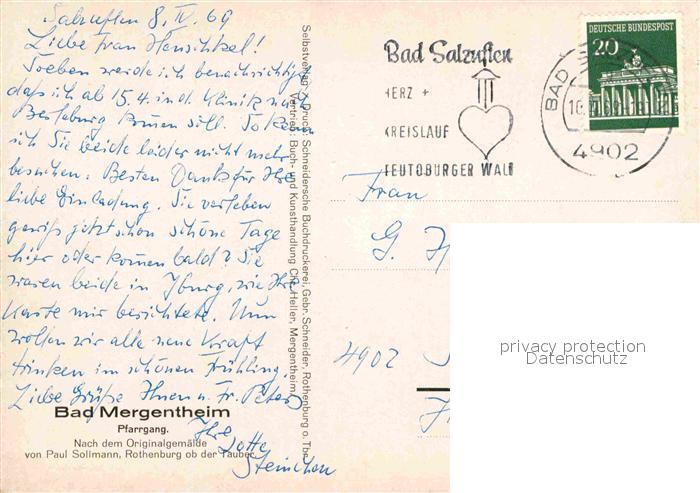 Salzuflen 8. IV. 69
Liebe Frau Henschkel!
Soeben werde ich benachrichtigt,
daß ich ab 15.4. in d. Klinik nach
Berleburg kommen soll. So kann
ich Sie beide leider nicht mehr
besuchen. Besten Dank für Ihre
liebe Einladung. Sie verleben
gewiß jetzt schon schöne Tage
hier oder kommen bald? Sie
waren beide in Iburg, wie Ihre
Karte mir berichtete. Nun
wollen wir alle neue Kraft
trinken im schönen Frühling.
Liebe Grüße Ihnen u. Fr. Peters
Ihre
Lotte
Steinchen
Bad Mergentheim
Pfarrgang.
Nach dem Originalgemälde
von Paul Sollmann, Rothenburg ob der Tauber
Selbstverlag u. Druck: Schneidersche Buchdruckerei, Gebr. Schneider, Rothenburg o. Tbr.
Vertrieb: Buch- und Kunsthandlung Chr. Heller, Mergentheim
Bad Salzuflen
HERZ +
KREISLAUF
TEUTOBURGER WALD
DEUTSCHE BUNDESPOST
20
BAD
4902
Frau
G.
4902
privacy protection
Datenschutz